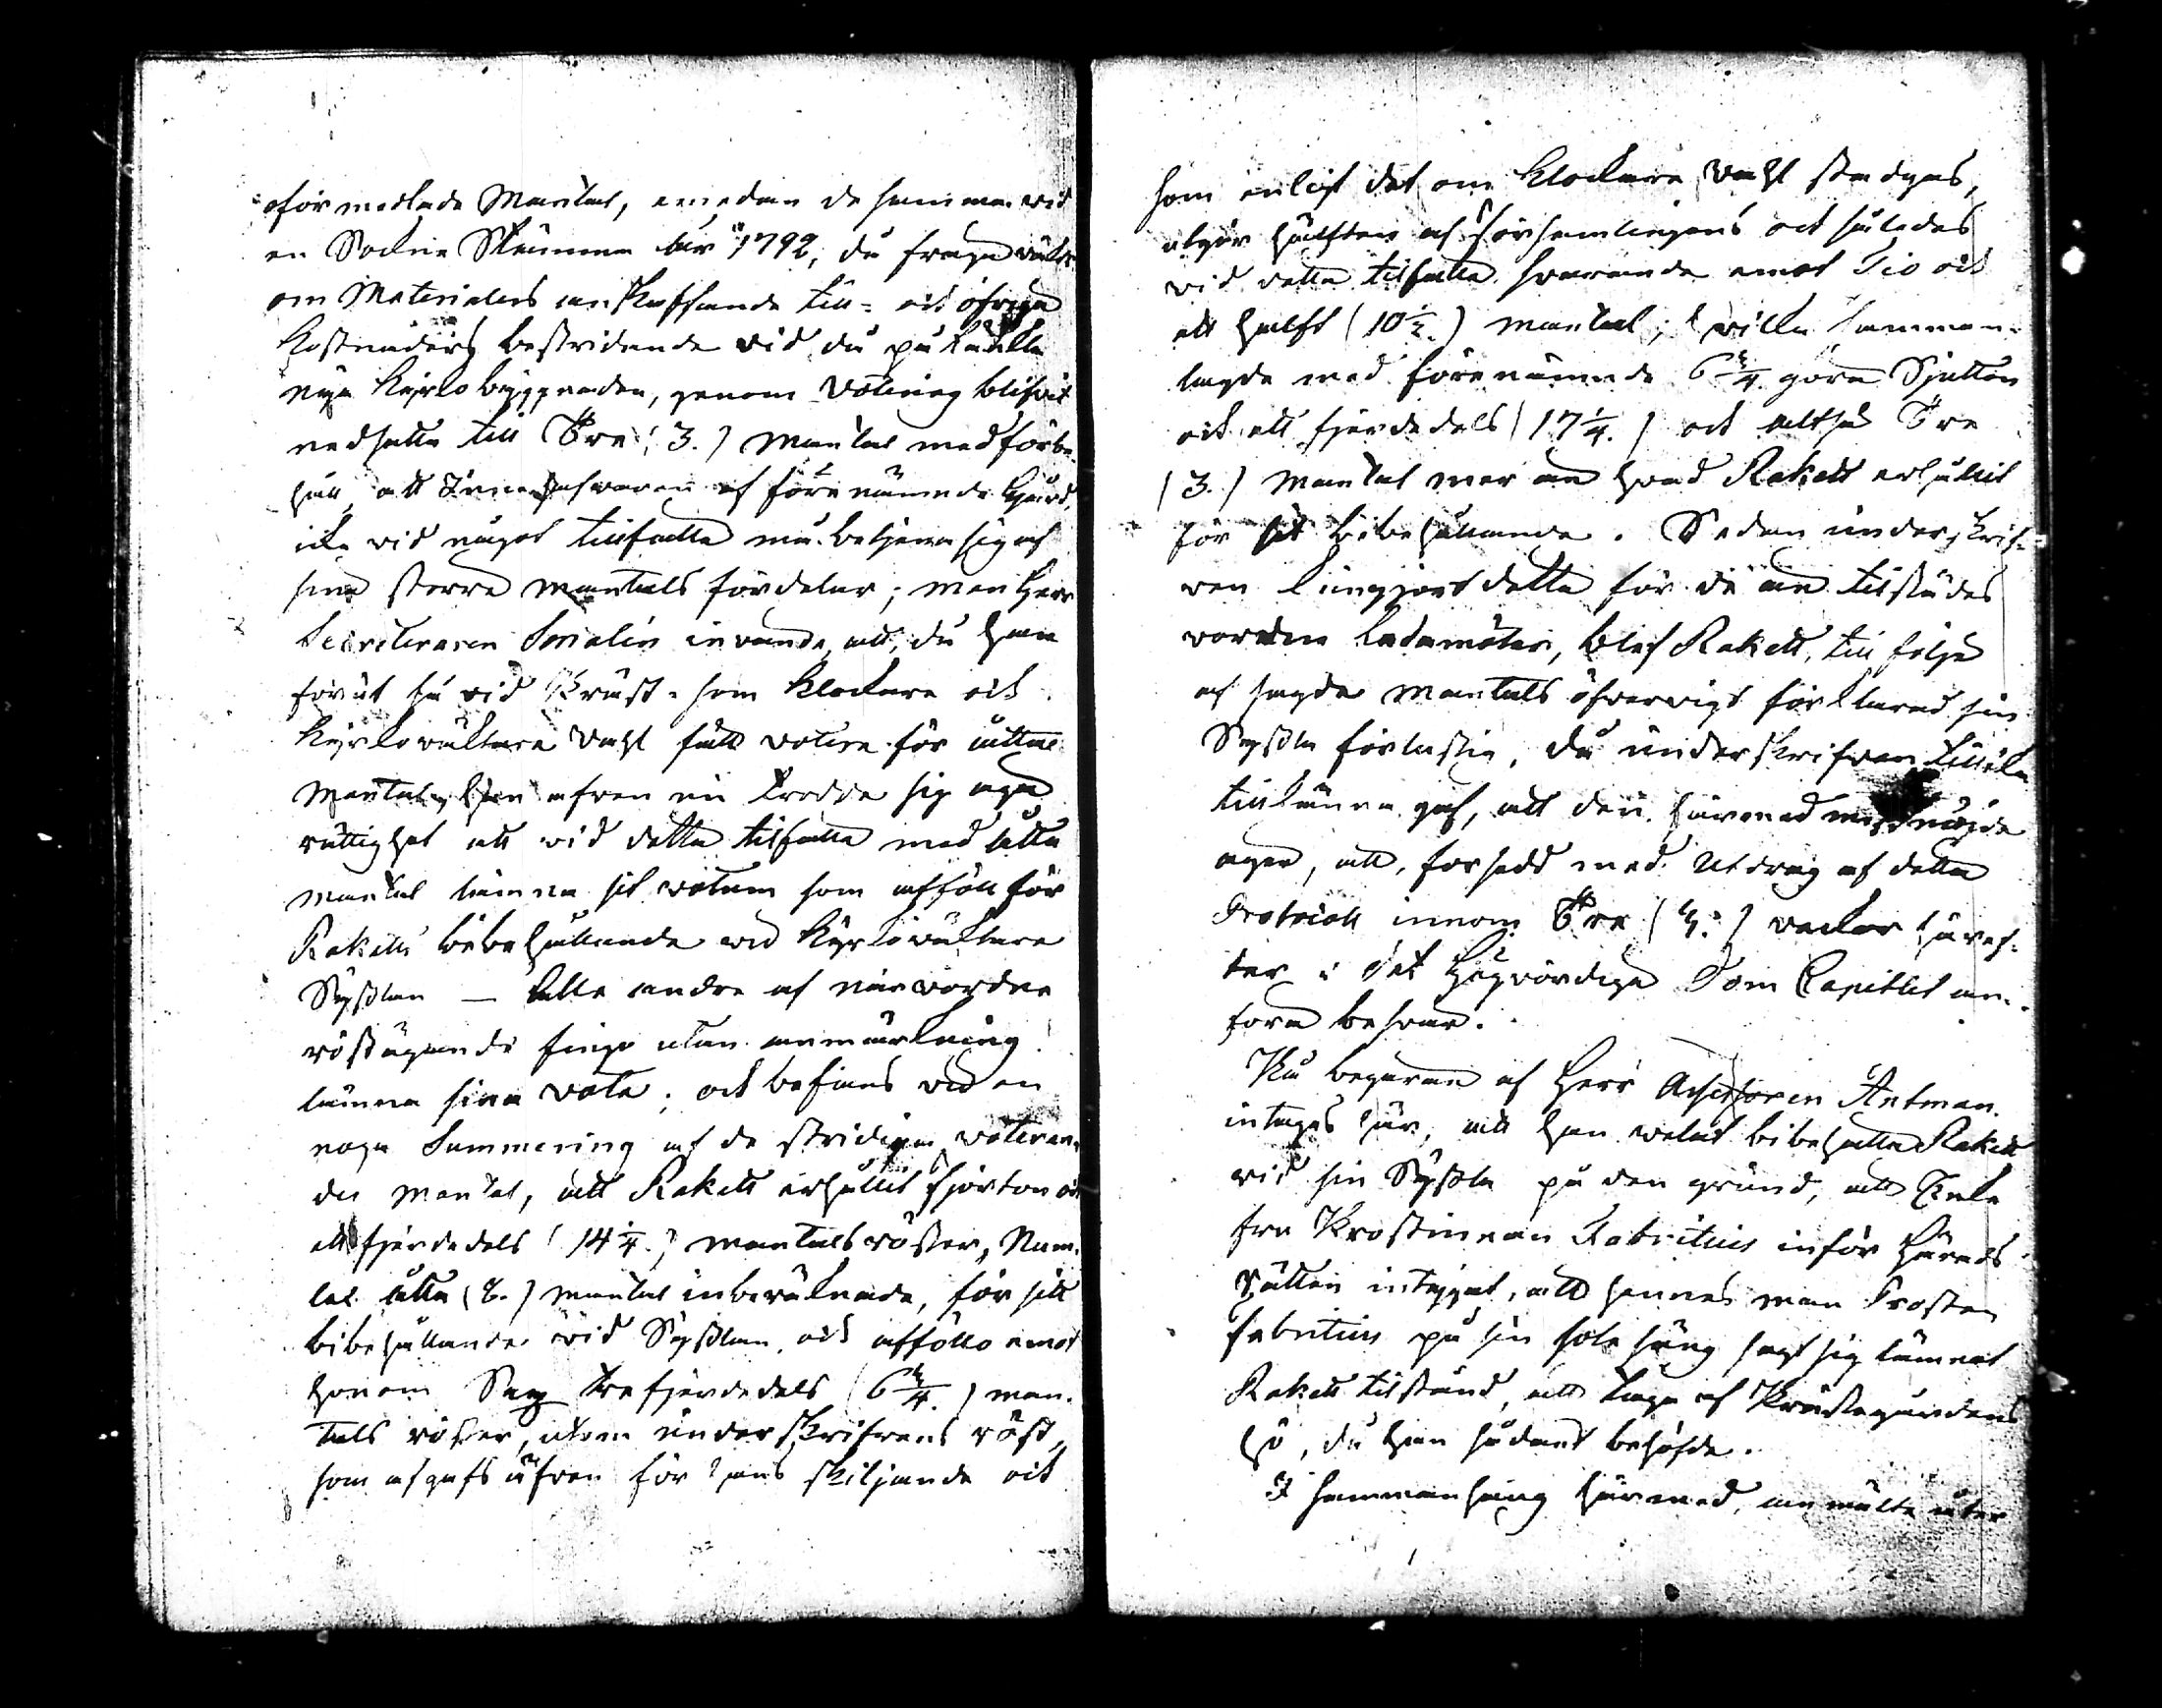 oförmedlade Mantal, emedan de samma wid
en Sockne Stämma år 1792, då fråga wäcktes
om Materialers anskaffande till- och öfriga
Kostnaders bestridande wid då påtänkta
nya Kyrkobyggnaden, genom votering blifwit
nedsatta till Tre (3.) Mantal med förbe-
håll, att Innehafwaren af förenämnde Gård,
icke wid något tillfälle må betjena sig af
sina större Mantals fördelar; men Herr
Secreteraren Smalén invände, att, då han
förut så wid Präst- som Klockare och
Kyrkowäktare Wahl fått votera för åtta
Mantal, han äfwen nu trodde sig äga
rättighet att wid detta tilfälle med åtta
Mantal lämna sit votum som afföll för
Raketts bibehållande wid Kyrkowäktare
Sysslan — Alla andre af närwarande
röstägande fingo utan anmärkning
lämna sina vota; och befans wid en
noga Summering af de stridiga voteran-
des Mantal, att Rakett erhållit fjorton och
ett fjerdedels (14 1/4.) Mantals röster,
åtta (8.) Mantal inberäknade, för sitt
bibehållande wid Sysslan, och afföllo emot
honom Sex trefjerdedels (6 3/4.) man-
tals röster, utom underskrifwens röst,
som afgafs äfwen för hans skiljande och
som enligt det om Klockare Wahl stadgas,
utgör hälften af Församlingens och således
wid detta tilfälle swarande emot Tio och
ett halft (10 1/2.) Mantal; hwilka samman-
lagde med förenämnde 6 3/4. göra Sjutton
och ett fjerdedels (17 1/4.) och altså Tre
(3.) Mantal mer än hwad Rakett erhållit
för sit bibehållande. Sedan underskrif-
wen kungjort detta för de än tilstädes
warande Ledamöter, blef Rakett, till följe
af sagde Mantals öfwerwigt förklarad sin
Syssla förlustig, då underskrifwen
tillkänna gaf, att den härmed missnöjde
äger, att, försedd med Utdrag af detta
Protocoll innom Tre (3.) weckor häref-
ter i det Högwördiga Dom Capitlet an-
föra beswär.
På begäran af Herr Assessoren Antman
intages här, att han welat bibehålla Rakett
wid sin Syssla på den grund, att Enke
fru Prostinnan Fabritius inför Härads
Rätten intygat, att hennes man Prosten
Fabritius på sin sotsäng sagt sig lämnat
Rakett tilstånd, att taga af Prästegårdens
hö, då han sådant behöfde.
I sammanhang härmed, anmälte åter